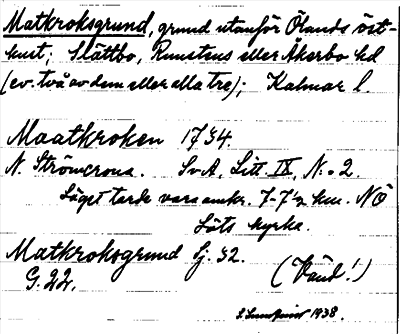 Matkroksgrund, grund utanför Ölands öst-
kust; Slättbo, Runstens eller Åkerbo hd
(ev. två av dem eller alla tre); Kalmar l.
Maatkroken 1734.
N. Strömcrona. SvA, Litt. IX, N.o 2.
Läget torde vara omkr. 7-7½ km. NÖ
Löts kyrka.
Matkroksgrund Sj. 32.
G. 22.
(Vänd!)
1938.